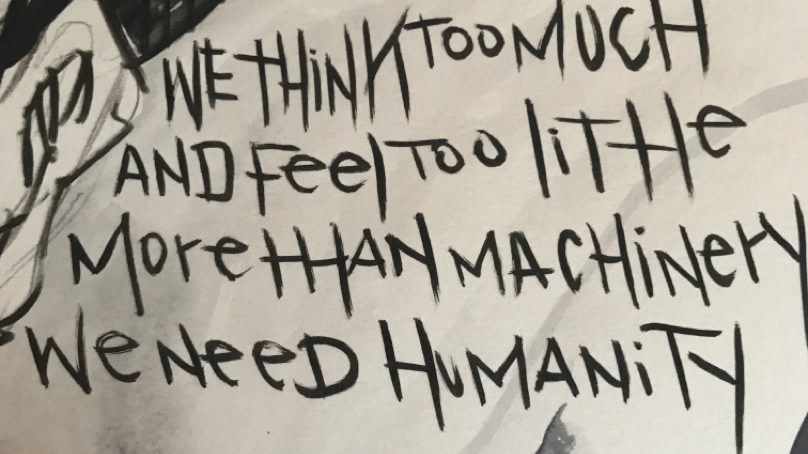 WE THiNK TOO MUCH
AND Feel TOO liTTle
More THAN MACHiNerY
We NeeD HUMANiTY